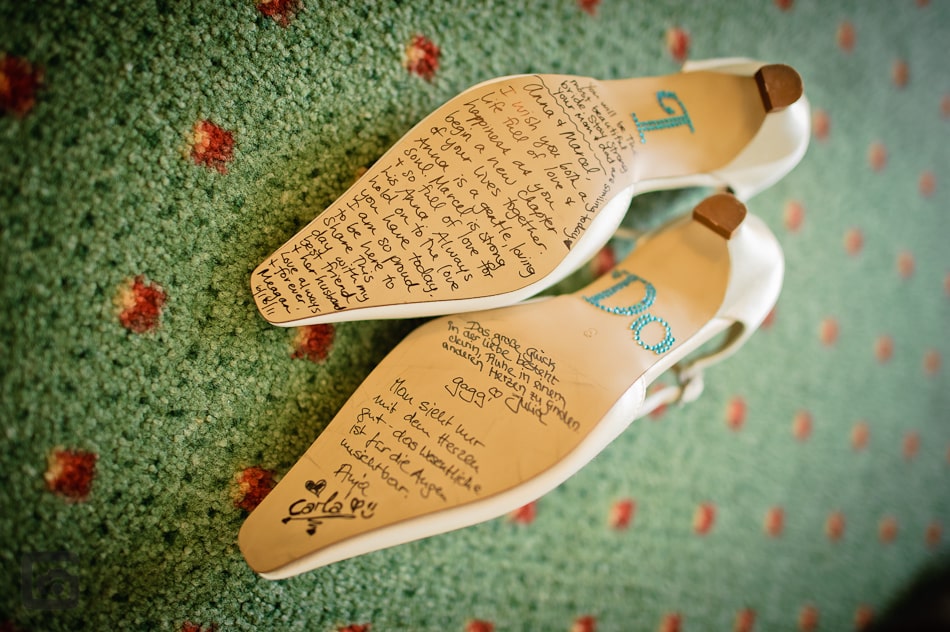 You will be the
most beautiful
bride. Stay strong
your mom & dad are smiling today
Anna & Marcel
I wish you both a
life full of love &
happiness as you
begin a new chapter
of your lives together.
Anna is a gentle loving
soul. Marcel is strong
& so full of love for
his Anna. Always
hold on to the love
you have today.
I am so proud
to be here to
share this
day with my
best friend
& her husband
Love always
& forever.
Meagan
I
Das große Glück
in der Liebe besteht
darin, Ruhe in einem
anderen Herzen zu finden
gagg Julia
Do
Man sieht nur
mit dem Herzen
gut - das Wesentliche
ist für die Augen
unsichtbar.
Anja
Carla